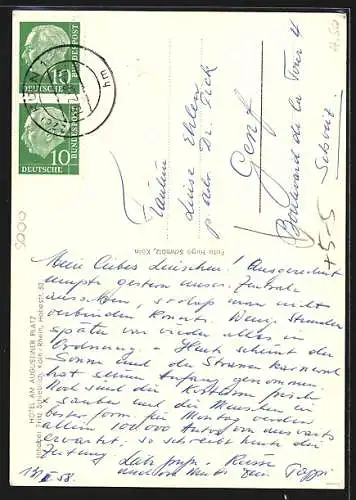 10
DEUTSCHE
BUNDESPOST
10
DEUTSCHE
BUNDESPOST
KÖLN
hm
4.50
5000
Fräulein
Luise Ehlen
p. adr. Dr. Fick
Genf
Boulevard de la Tour 4
Schweiz
+5-5
Foto Hugo Schmölz, Köln
HOTEL AM AUGUSTINER PLATZ
Inhaber: Fritz Schlebusch, Köln/Rhein, Hohestr. 30
Mein liebes Luischen! Ausgerechnet
musste gestern unsere Zentrale
aussetzen, sodass man nicht
verbinden konnte. Wenig Stunden
später war wieder alles in
Ordnung. - Heut scheint die
Sonne und der Strassenkarneval
hat seinen Anfang genommen.
Noch sind die Kostüme frisch
& sauber und die Menschen in
bester Form. Für Montag werden
allein 100000 Autos von auswärts
erwartet - so schreibt heute die
Zeitung.
58.